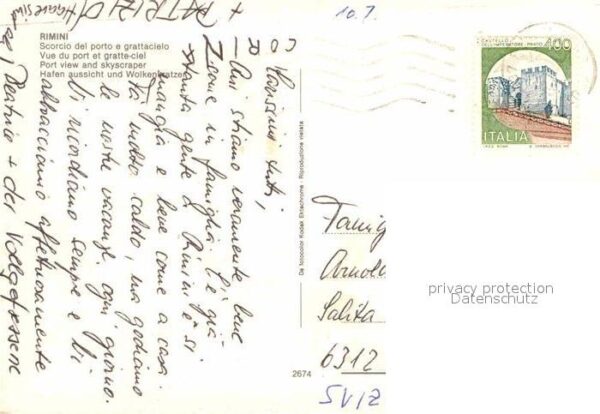 RIMINI
Scorcio del porto e grattacielo
Vue du port et gratte-ciel
Port view and skyscraper
Hafen aussicht und Wolkenkratzer
10.7.
+ PATRIZIA
Carissimi tutti,
Qui stiamo veramente bene
come in famiglia. C'è già
tanta gente. A Rimini si
mangia e beve come a casa.
Fa molto caldo, ma godiamo
le nostre vacanze ogni giorno.
Vi ricordiamo sempre e Vi
abbracciamo affettuosamente
Beatrice +
CASTELLO
DELL'IMPERATORE - PRATO
400
ITALIA
De Iocolor Kodak Ektachrome - Riproduzione vietata
2674
Famig
Arnold
Salita
6312
SVIZ
privacy protection
Datenschutz